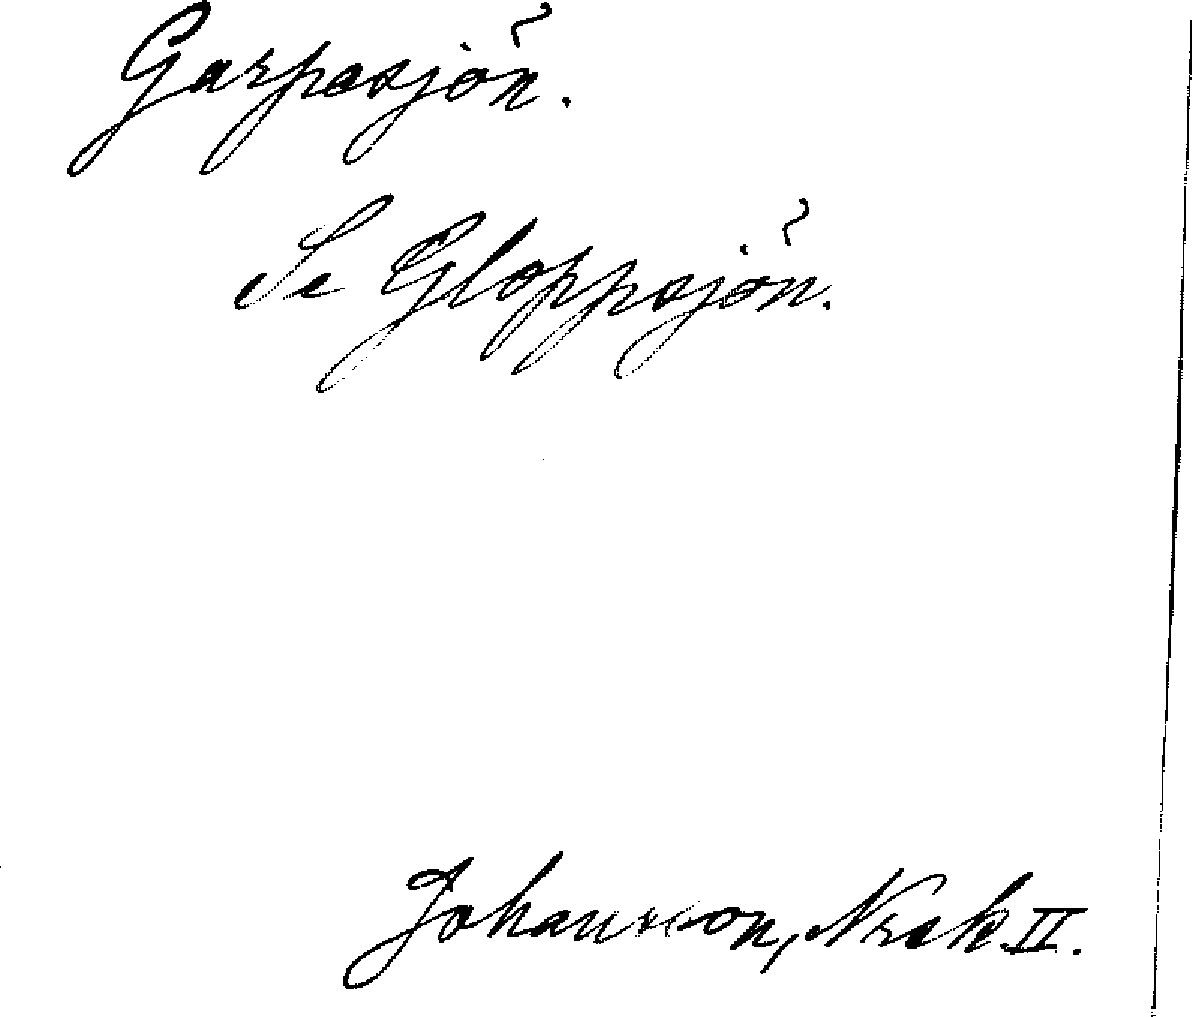 Garpasjön.
Se Gloppsjön.
Johansson, Nrsk II.